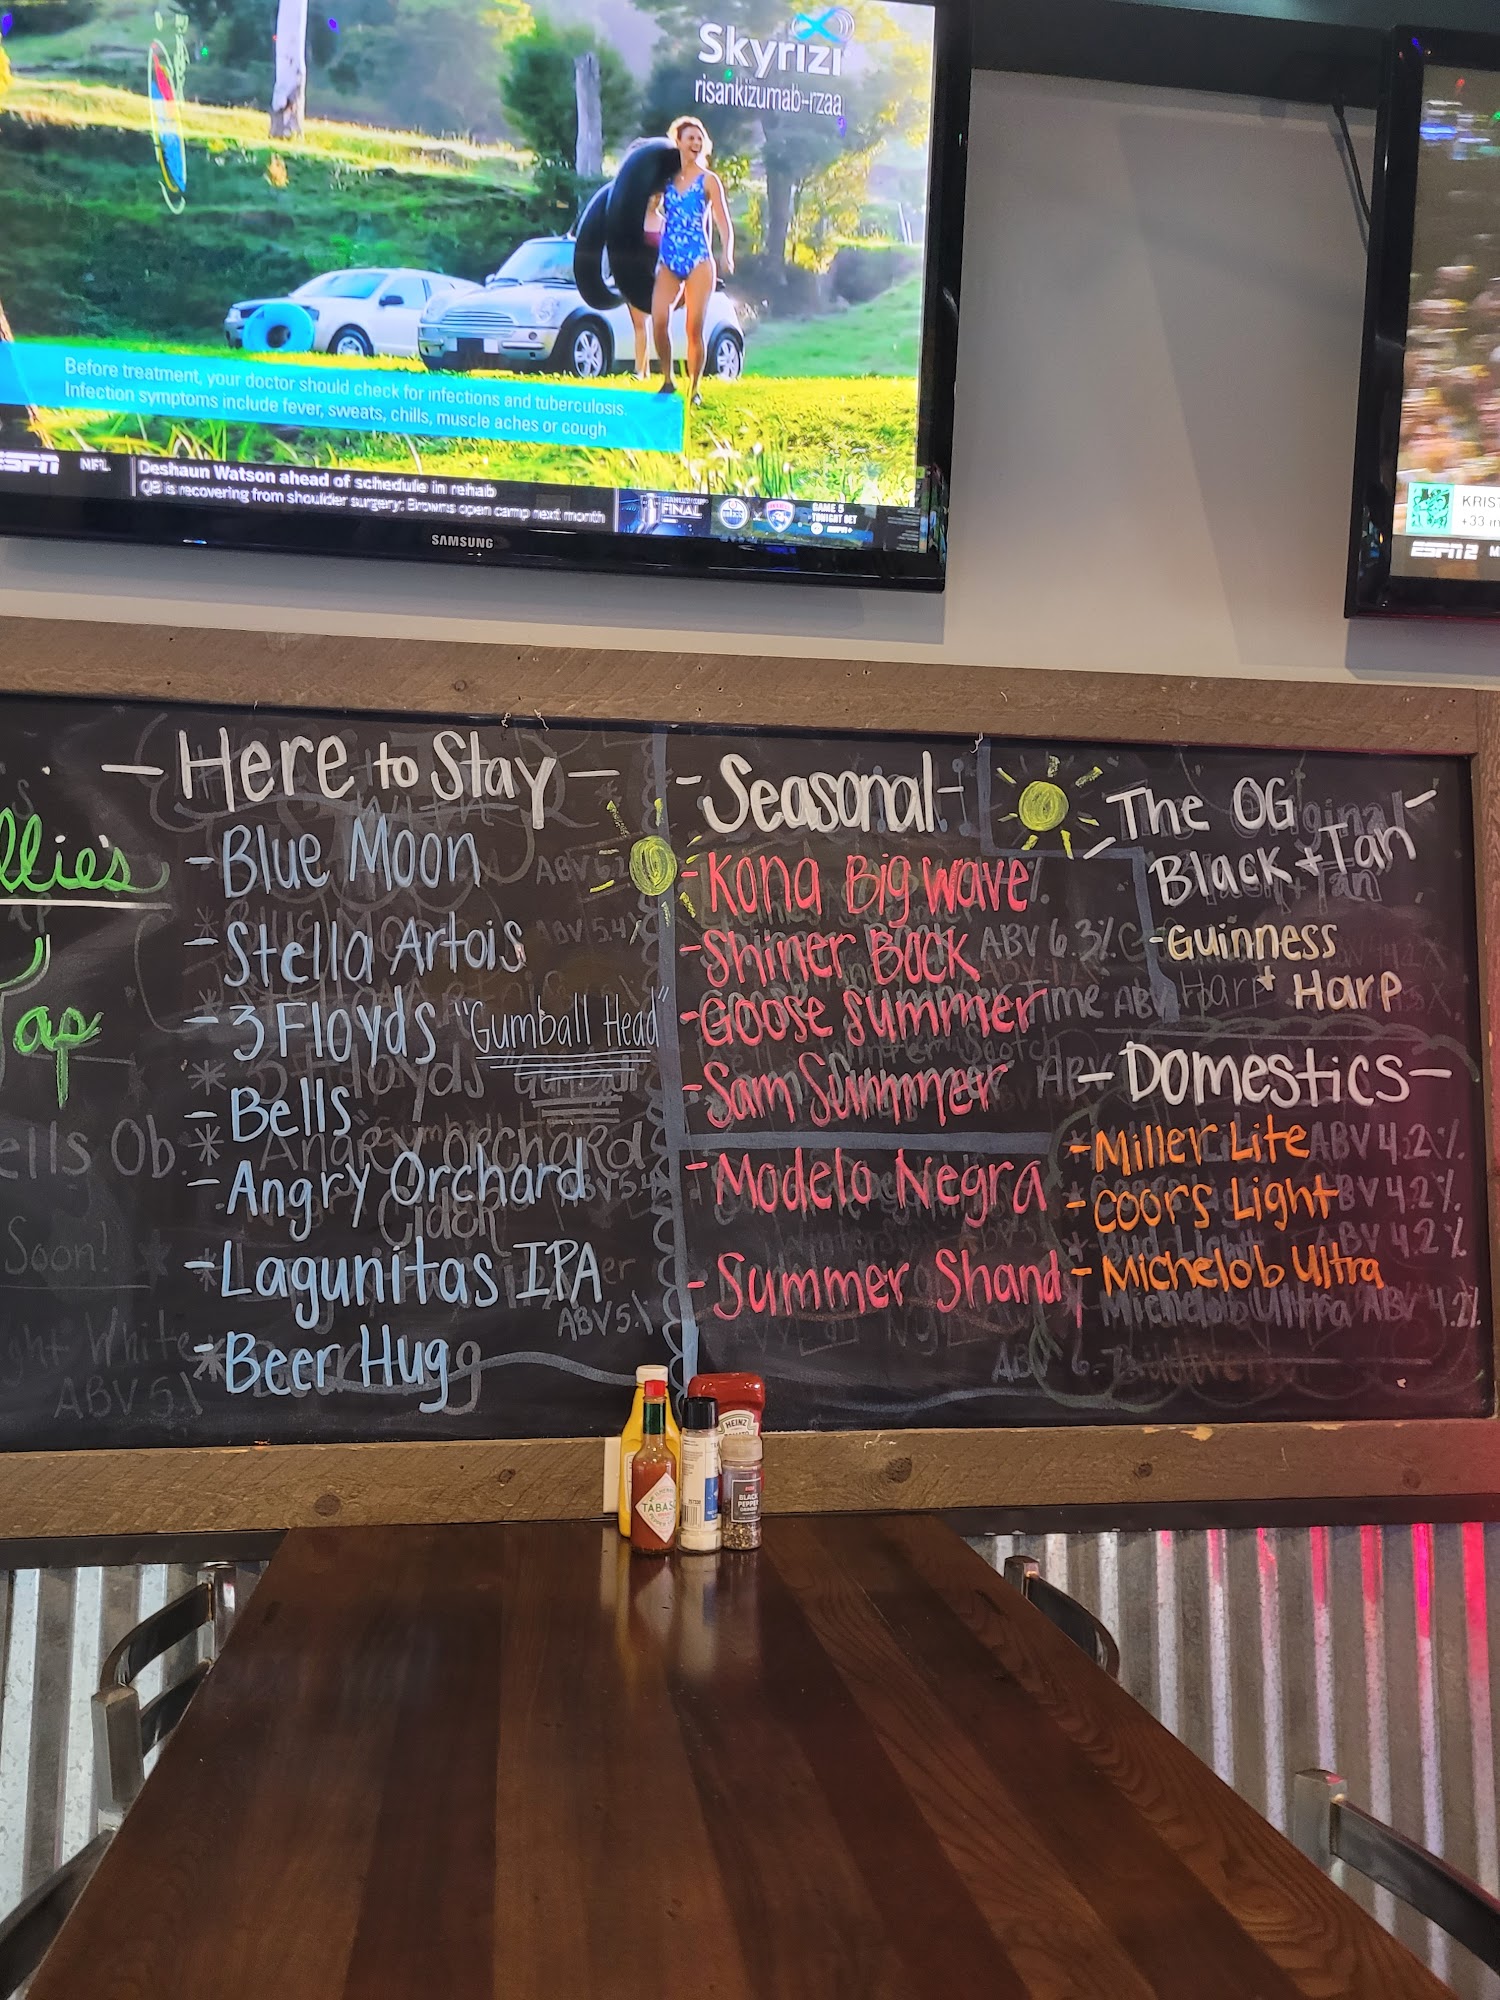 Skyrizi
risankizumab-rzaa
Before treatment, your doctor should check for infections and tuberculosis.
Infection symptoms include fever, sweats, chills, muscle aches or cough
ESPN
NFL
Deshaun Watson ahead of schedule in rehab
QB is recovering from shoulder surgery; Browns open camp next month
FINAL
GAME 5
TONIGHT 8ET
ESPN+
SAMSUNG
KRIST
+33 m
ESPN 2
M
llie's
Tap
ells Ob
Soon!
ght White
ABV 5.
- Here to Stay -
- Blue Moon
- Stella Artois
- 3 Floyds "Gumball Head"
- Bells
- Angry Orchard
- Lagunitas IPA
- Beer Hug
ABV 5%
- Seasonal -
- Kona Big Wave
- Shiner Bock
ABV 6.3%
- Goose Summer
Time ABV
- Sam Summer
- Modelo Negra
- Summer Shand
- The OG -
Black + Tan
- Guinness
+ Harp
- Domestics -
- Miller Lite
ABV 4.2%
- Coors Light
BV 4.2%
ABV 4.2%
- Michelob Ultra
Michelob Ultra ABV 4.2%
HEINZ
TABAS
BLACK
PEPPER